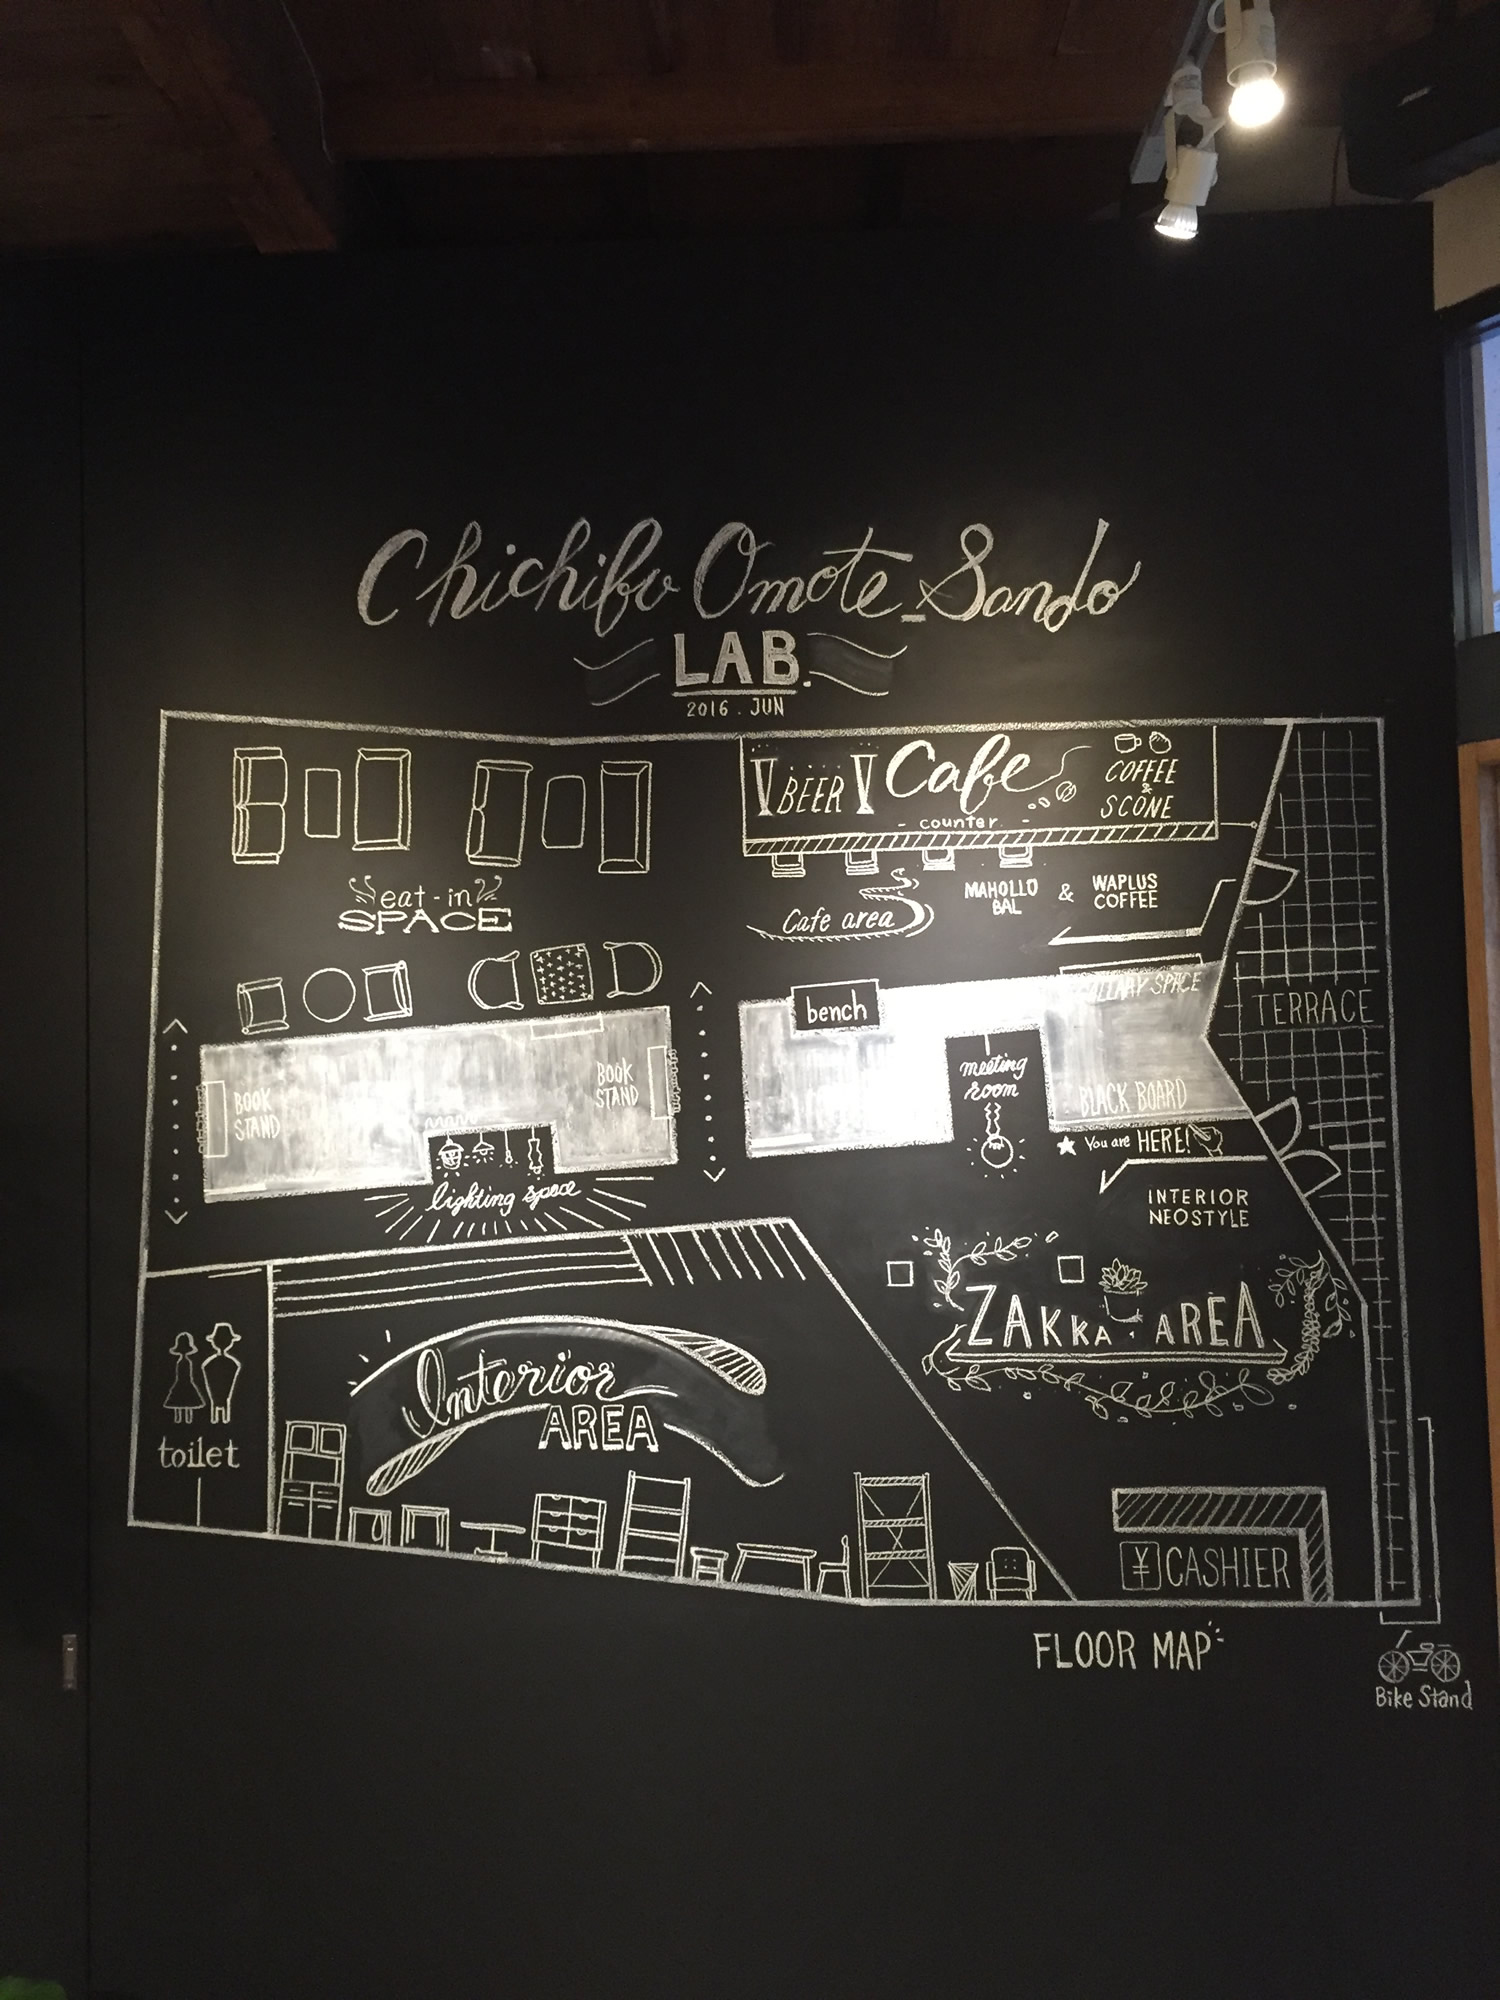 Chichibu Omote_Sando
LAB.
2016. JUN
BEER
Cafe
- counter -
COFFEE
&
SCONE
eat-in
SPACE
Cafe area
MAHOLLO
BAL
&
WAPLUS
COFFEE
bench
SPACE
TERRACE
BOOK
STAND
BOOK
STAND
meeting
room
BLACK BOARD
You are HERE!
lighting space
INTERIOR
NEOSTYLE
ZAKKA・AREA
Interior
AREA
toilet
¥ CASHIER
FLOOR MAP
Bike Stand